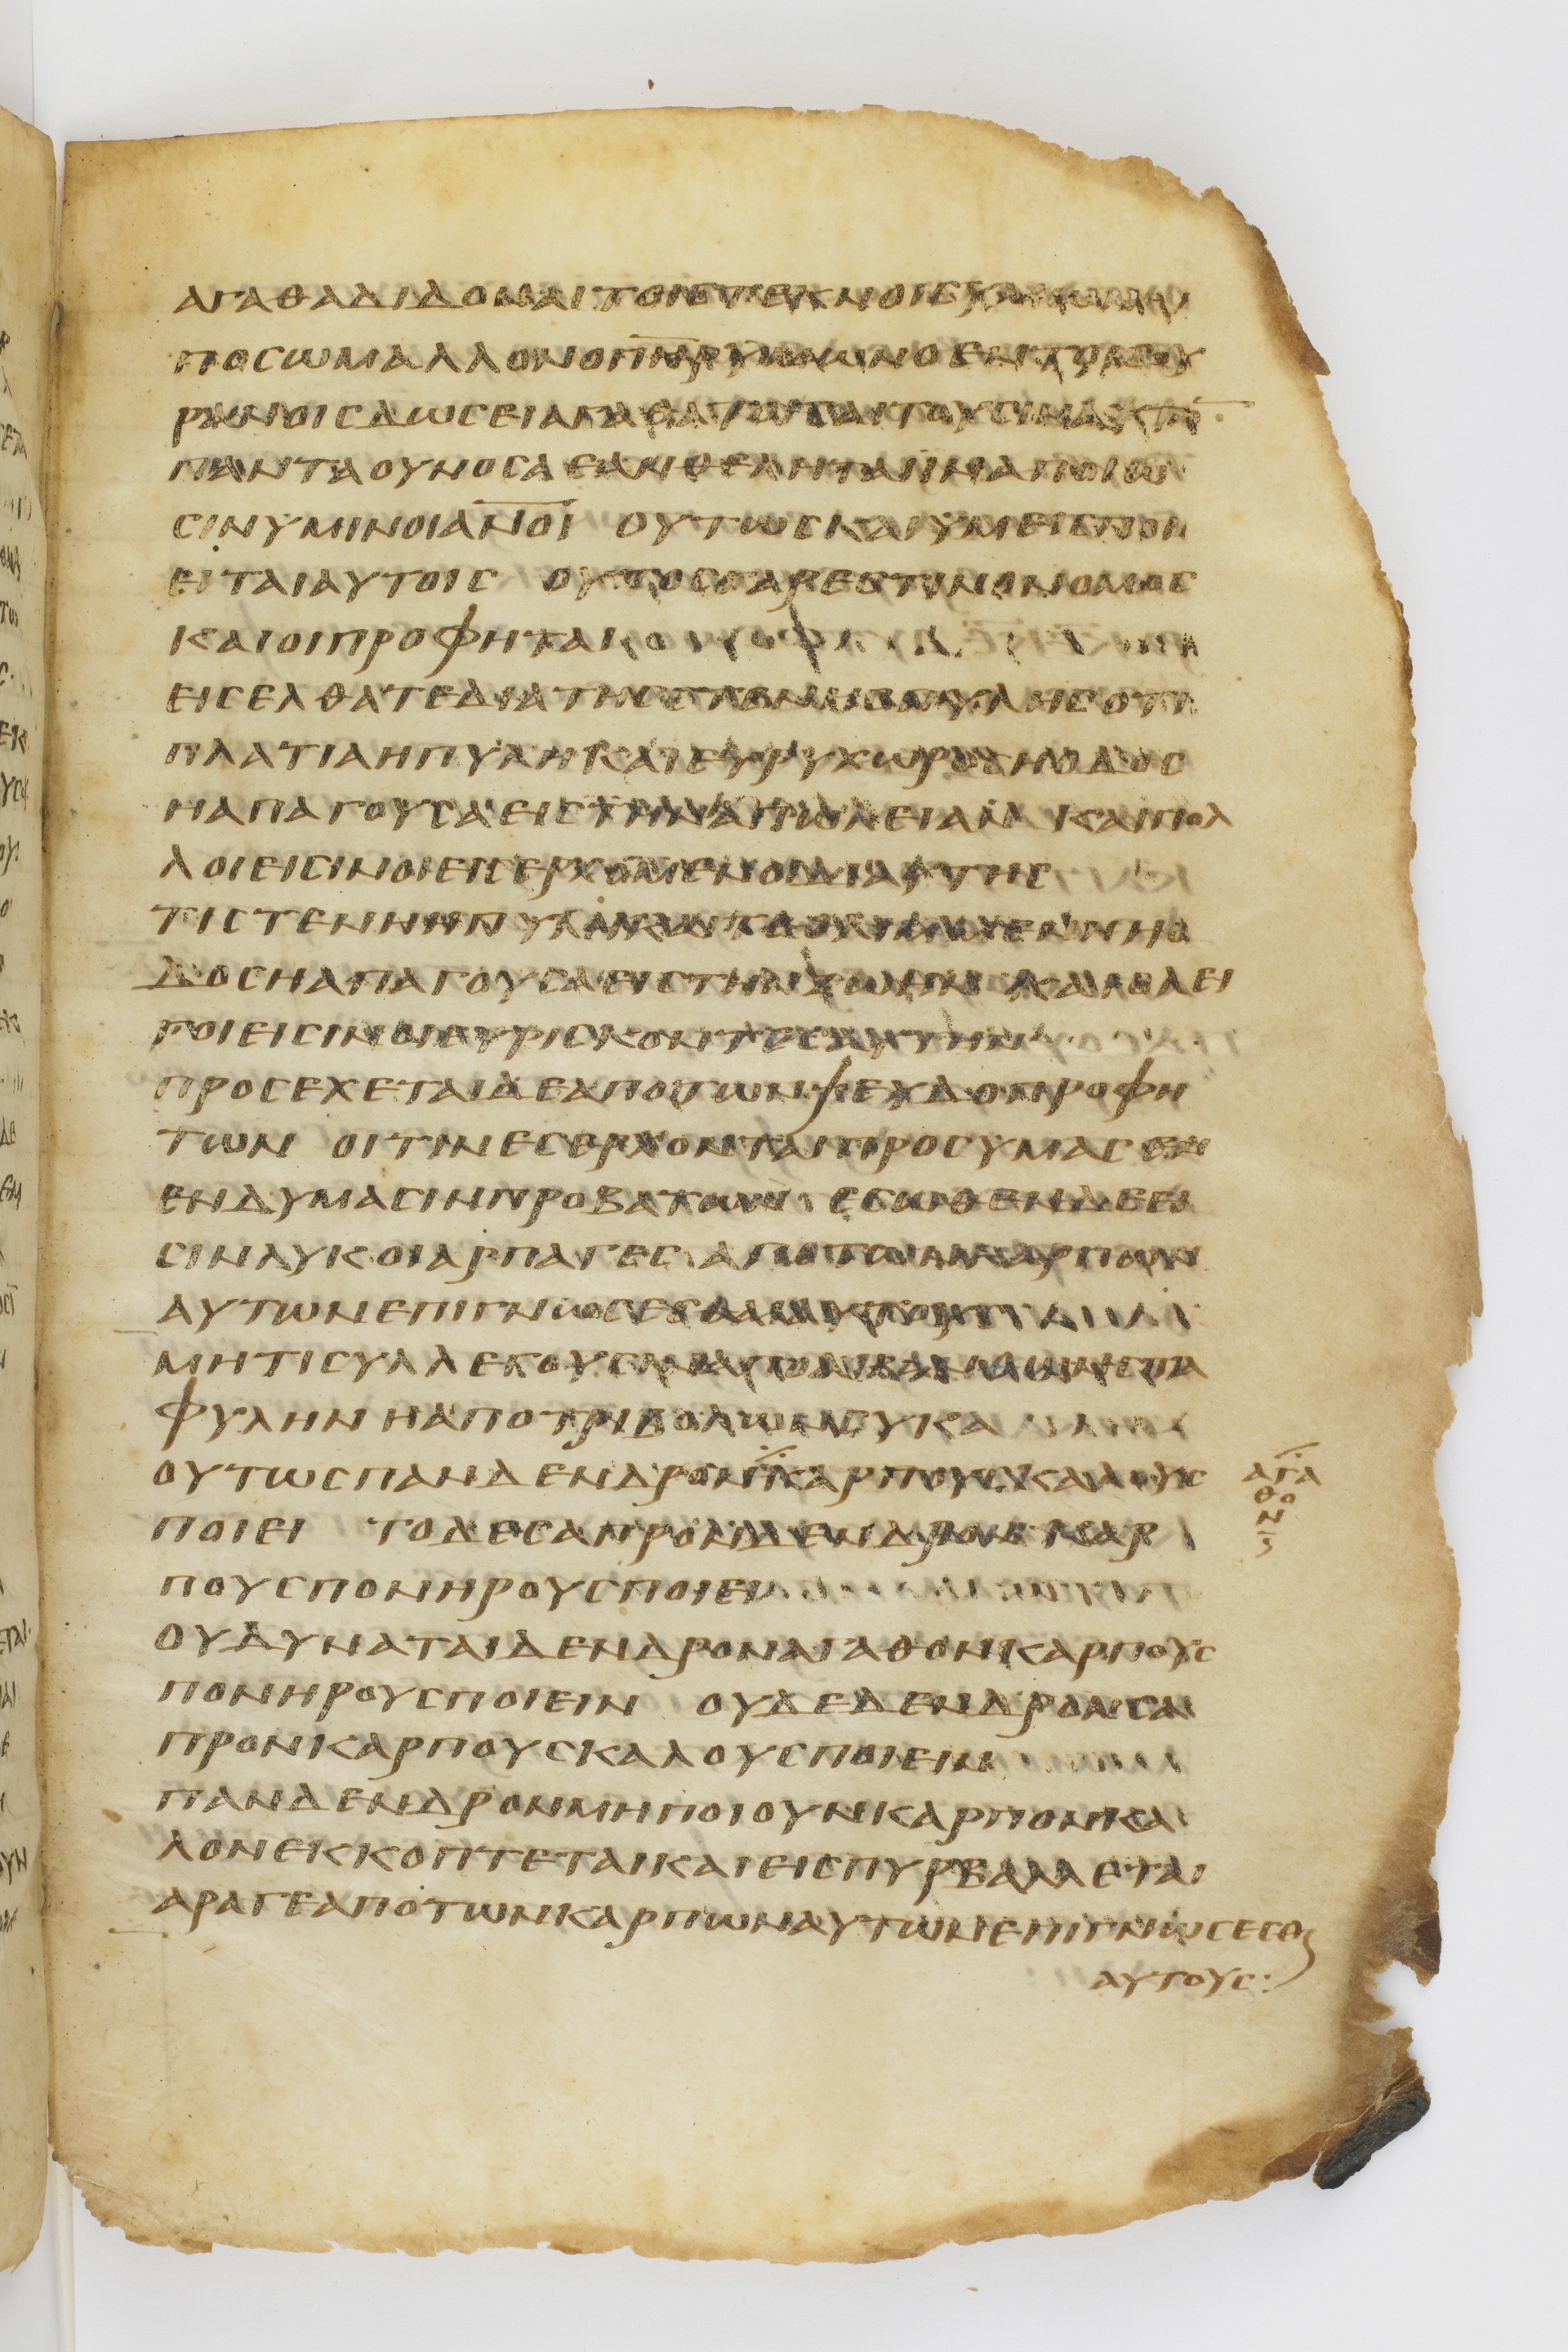 ΑΓΑΘΑΔΙΔΟΝΑΙΤΟΙΣΤΕΚΝΟΙΣΥΜΩΝ
ΠΟΣΩΜΑΛΛΟΝΟΠΗΡΥΜΩΝΟΕΝΤΟΙΣΟΥ
ΡΑΝΟΙΣΔΩΣΕΙΑΓΑΘΑΤΟΙΣΑΙΤΟΥΣΙΝΑΥΤΟΝ
ΠΑΝΤΑΟΥΝΟΣΑΕΑΝΘΕΛΗΤΑΙΙΝΑΠΟΙΩ
ΣΙΝΥΜΙΝΟΙΑΝΟΙ ΟΥΤΩΣΚΑΙΥΜΕΙΣΠΟΙ
ΕΙΤΑΙΑΥΤΟΙΣ ΟΥΤΟΣΓΑΡΕΣΤΙΝΟΝΟΜΟΣ
ΚΑΙΟΙΠΡΟΦΗΤΑΙ
ΕΙΣΕΛΘΑΤΕΔΙΑΤΗΣΣΤΕΝΗΣΠΥΛΗΣΟΤΙ
ΠΛΑΤΙΑΗΠΥΛΗΚΑΙΕΥΡΥΧΩΡΟΣΗΟΔΟΣ
ΗΑΠΑΓΟΥΣΑΕΙΣΤΗΝΑΠΩΛΕΙΑΝ ΚΑΙΠΟΛ
ΛΟΙΕΙΣΙΝΟΙΕΙΣΕΡΧΟΜΕΝΟΙΔΙΑΥΤΗΣ
ΤΙΣΤΕΝΗΗΠΥΛΗΚΑΙΤΕΘΛΙΜΜΕΝΗΗΟ
ΔΟΣΗΑΠΑΓΟΥΣΑΕΙΣΤΗΝΖΩΗΝ ΚΑΙΟΛΕΙ
ΓΟΙΕΙΣΙΝΟΙΕΥΡΙΣΚΟΝΤΕΣΑΥΤΗΝ
ΠΡΟΣΕΧΕΤΑΙΔΕΑΠΟΤΩΝΨΕΥΔΟΠΡΟΦΗ
ΤΩΝ ΟΙΤΙΝΕΣΕΡΧΟΝΤΑΙΠΡΟΣΥΜΑΣΕΝ
ΕΝΔΥΜΑΣΙΝΠΡΟΒΑΤΩΝ ΕΣΩΘΕΝΔΕΕΙ
ΣΙΝΛΥΚΟΙΑΡΠΑΓΕΣ ΑΠΟΤΩΝΚΑΡΠΩΝ
ΑΥΤΩΝΕΠΙΓΝΩΣΕΣΘΑΙΑΥΤΟΥΣ
ΜΗΤΙΣΥΛΛΕΓΟΥΣΙΝΑΠΟΑΚΑΝΘΩΝΣΤΑ
ΦΥΛΗΝ ΗΑΠΟΤΡΙΒΟΛΩΝΣΥΚΑ
ΟΥΤΩΣΠΑΝΔΕΝΔΡΟΝΚΑΡΠΟΥΣΚΑΛΟΥΣ
ΑΓΑ
ΘΟ
Ν
ΠΟΙΕΙ ΤΟΔΕΣΑΠΡΟΝΔΕΝΔΡΟΝ ΚΑΡ
ΠΟΥΣΠΟΝΗΡΟΥΣΠΟΙΕΙ
ΟΥΔΥΝΑΤΑΙΔΕΝΔΡΟΝΑΓΑΘΟΝΚΑΡΠΟΥΣ
ΠΟΝΗΡΟΥΣΠΟΙΕΙΝ ΟΥΔΕΔΕΝΔΡΟΝΣΑ
ΠΡΟΝΚΑΡΠΟΥΣΚΑΛΟΥΣΠΟΙΕΙΝ
ΠΑΝΔΕΝΔΡΟΝΜΗΠΟΙΟΥΝΚΑΡΠΟΝΚΑ
ΛΟΝΕΚΚΟΠΤΕΤΑΙΚΑΙΕΙΣΠΥΡΒΑΛΛΕΤΑΙ
ΑΡΑΓΕΑΠΟΤΩΝΚΑΡΠΩΝΑΥΤΩΝΕΠΙΓΝΩΣΕΣΘ
ΑΥΤΟΥΣ·